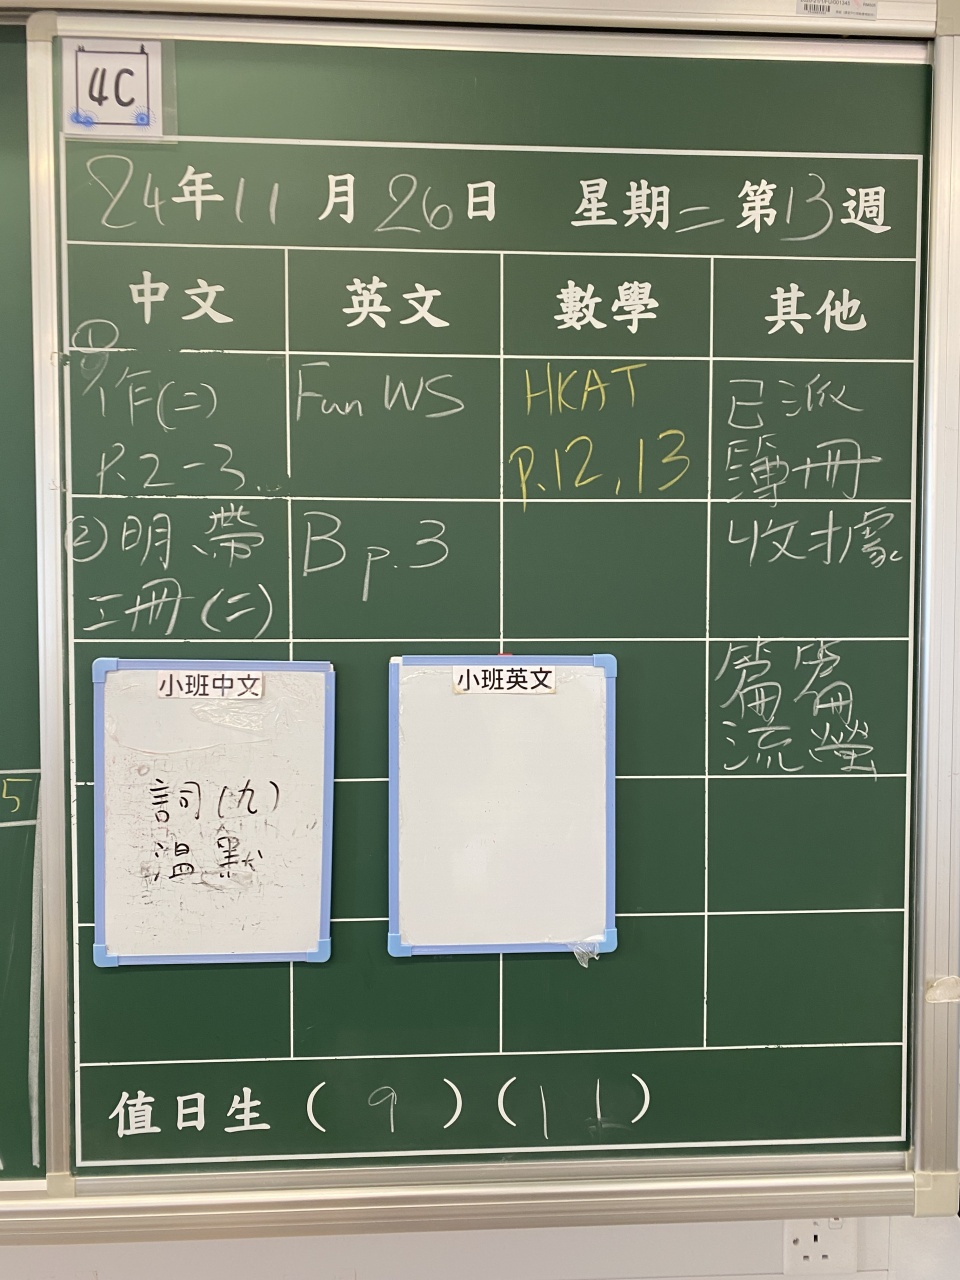 4C
24年11月26日 星期二第13週
中文 英文 數學 其他
① 作(二) Fun WS HKAT 已派
P.2-3 P.12,13 簿冊
② 明帶 B p.3 收據
工冊(二)
篇篇
流螢
小班中文 小班英文
詞(九)
溫默
5
值日生 ( 9 ) ( 11 )